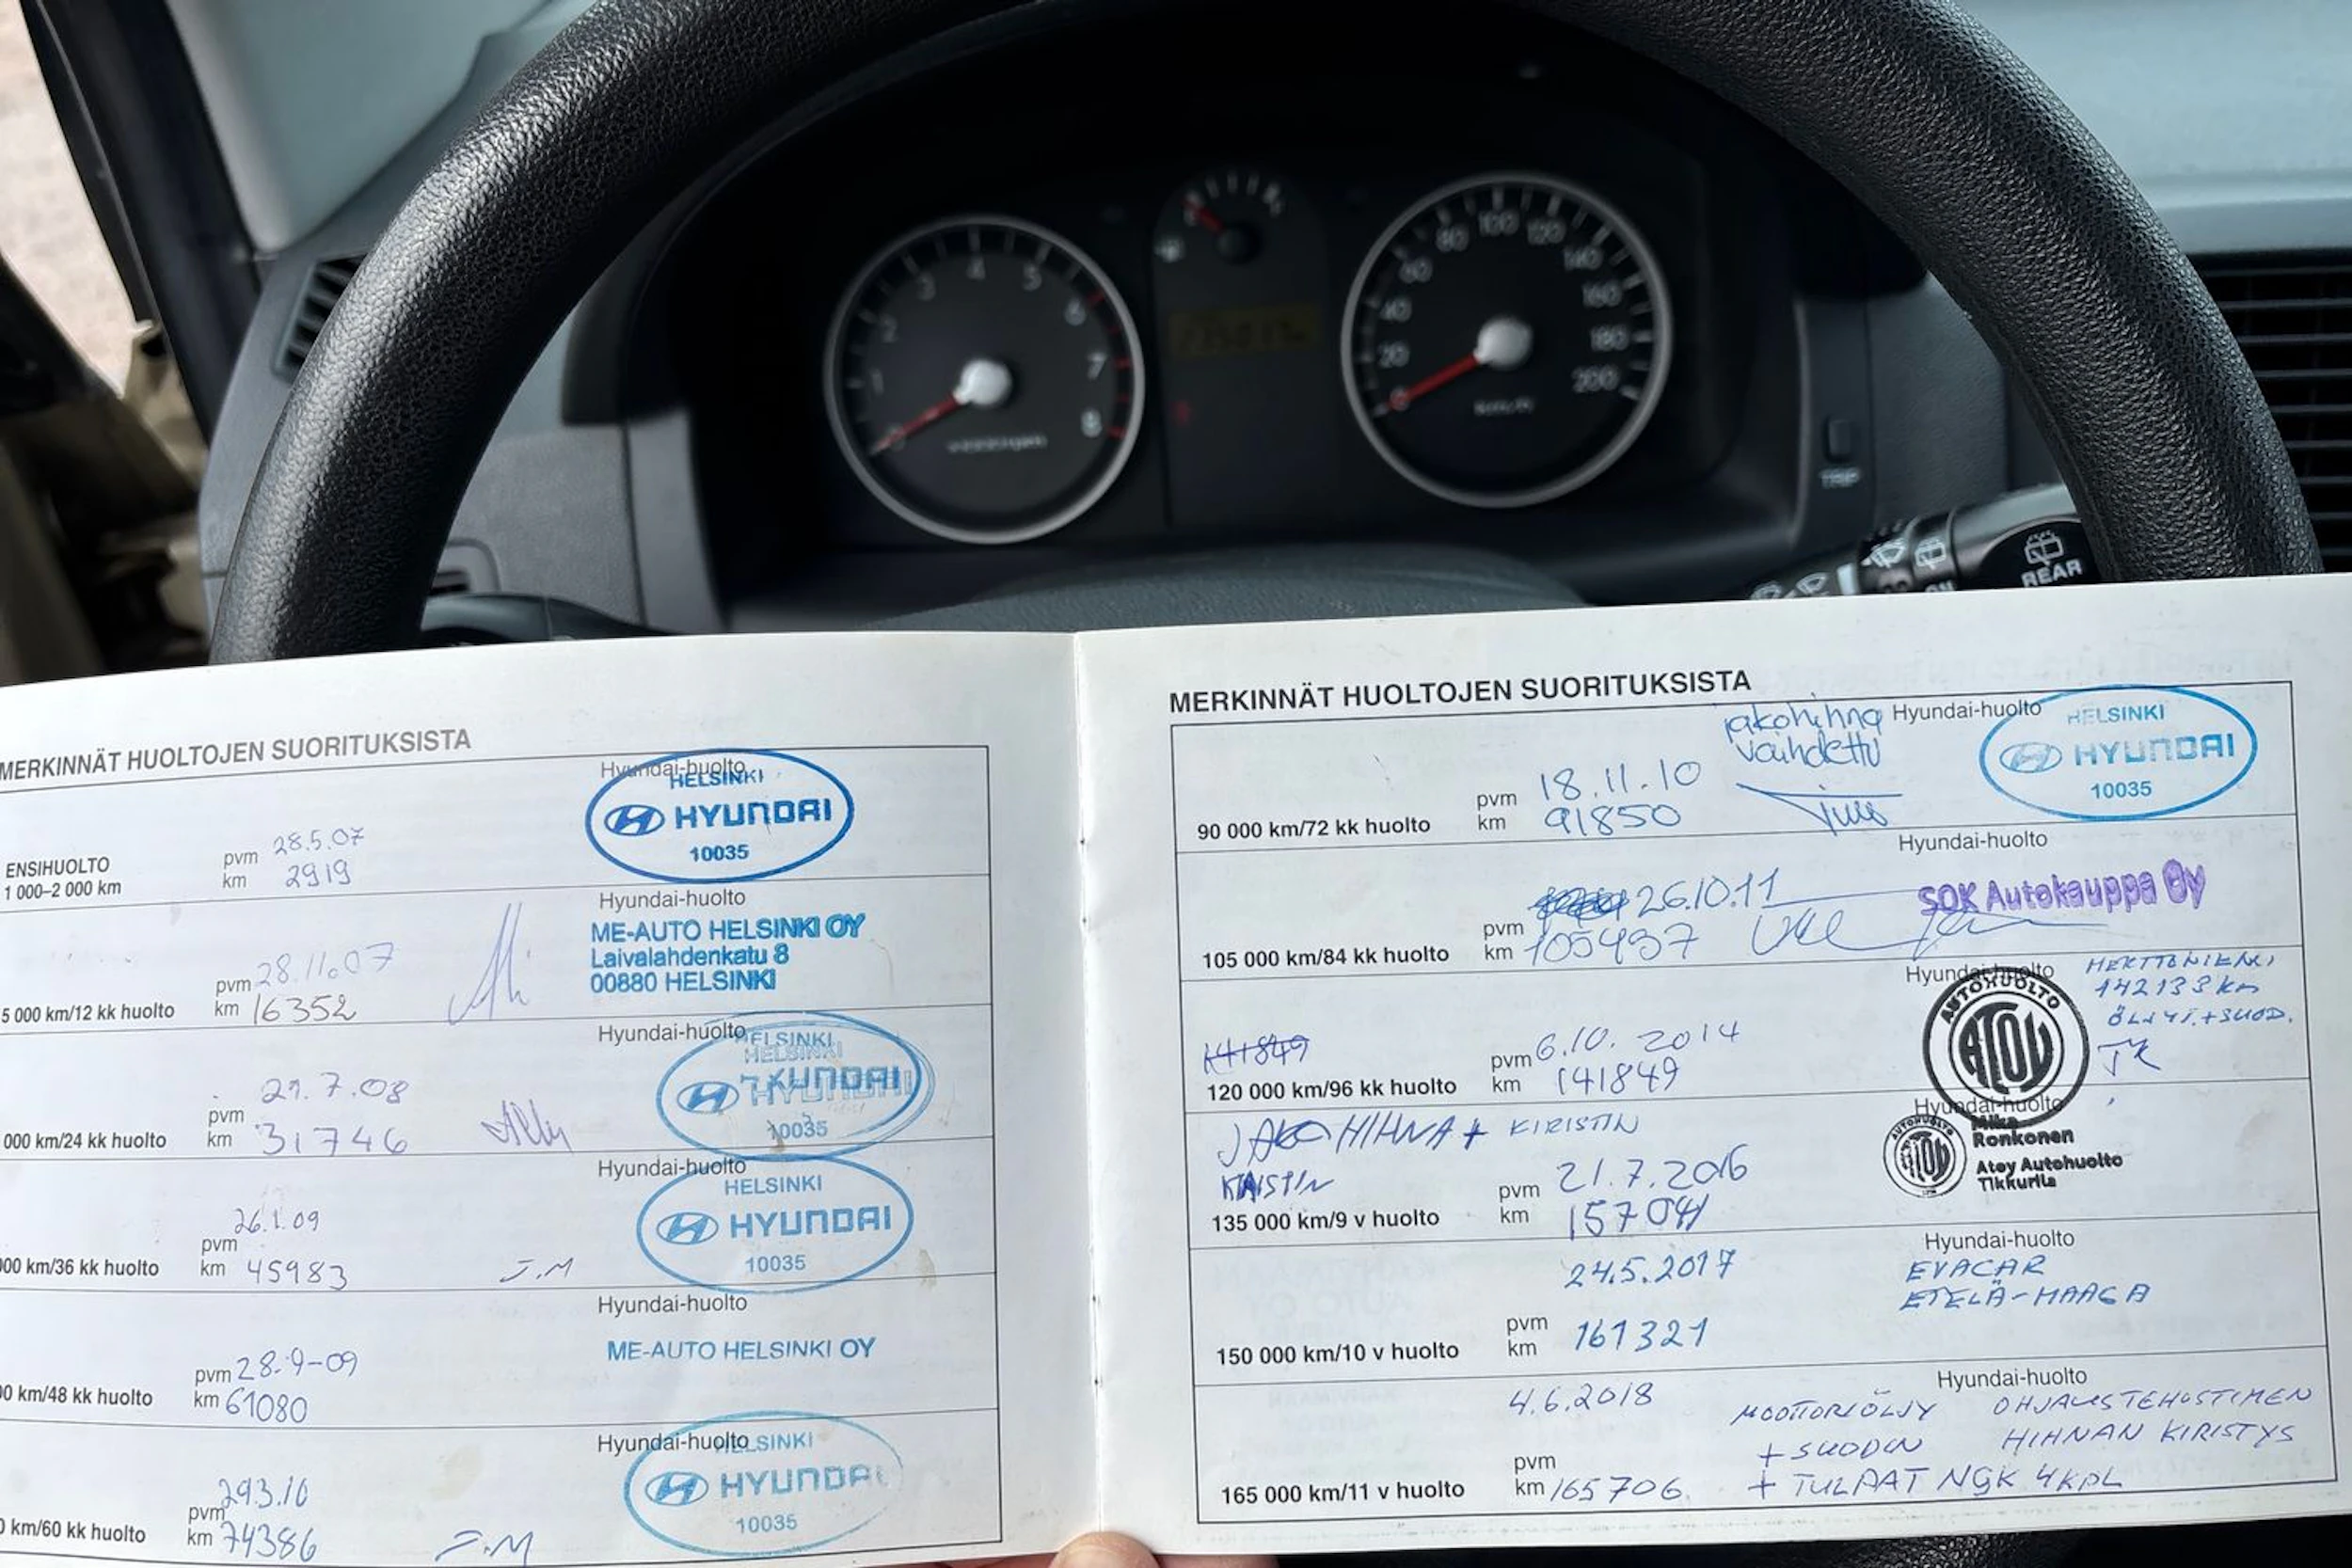 1
2
3
4
5
6
7
8
0
20
40
60
80
100
120
140
160
180
200
km/h
TRIP
REAR
MERKINNÄT HUOLTOJEN SUORITUKSISTA
ENSIHUOLTO
1 000–2 000 km
pvm 28.5.07
km 2919
Hyundai-huolto
HELSINKI
HYUNDAI
10035
5 000 km/12 kk huolto
pvm 28.11.07
km 16352
Hyundai-huolto
ME-AUTO HELSINKI OY
Laivalahdenkatu 8
00880 HELSINKI
000 km/24 kk huolto
pvm 29.7.08
km 31746
Hyundai-huolto
HELSINKI
HYUNDAI
10035
000 km/36 kk huolto
pvm 26.1.09
km 45983
J.M
Hyundai-huolto
HELSINKI
HYUNDAI
10035
00 km/48 kk huolto
pvm 28.9-09
km 61080
Hyundai-huolto
ME-AUTO HELSINKI OY
0 km/60 kk huolto
pvm 29.3.10
km 74386
J.M
Hyundai-huolto
HELSINKI
HYUNDAI
10035
MERKINNÄT HUOLTOJEN SUORITUKSISTA
90 000 km/72 kk huolto
pvm 18.11.10
km 91850
jakohihna
vaihdettu
Hyundai-huolto
HELSINKI
HYUNDAI
10035
105 000 km/84 kk huolto
pvm 26.10.11
km 105497
Hyundai-huolto
SOK Autokauppa Oy
141849
120 000 km/96 kk huolto
pvm 6.10.2014
km 141849
Hyundai-huolto
AUTOHUOLTO
ATOY
HERTTONIEMI
142133 km
ÖLJYT.+SUOD.
JK
JAKOHIHNA + KIRISTIN
135 000 km/9 v huolto
pvm 21.7.2016
km 157041
Hyundai-huolto
AUTOHUOLTO
ATOY
Mika
Ronkonen
Atoy Autohuolto
Tikkurila
150 000 km/10 v huolto
24.5.2017
pvm
km 161321
Hyundai-huolto
EVACAR
ETELÄ-HAAGA
165 000 km/11 v huolto
4.6.2018
pvm
km 165706
MOOTTORIÖLJY
+ SUODIN
+ TULPAT NGK 4KPL
Hyundai-huolto
OHJAUSTEHOSTIMEN
HIHNAN KIRISTYS